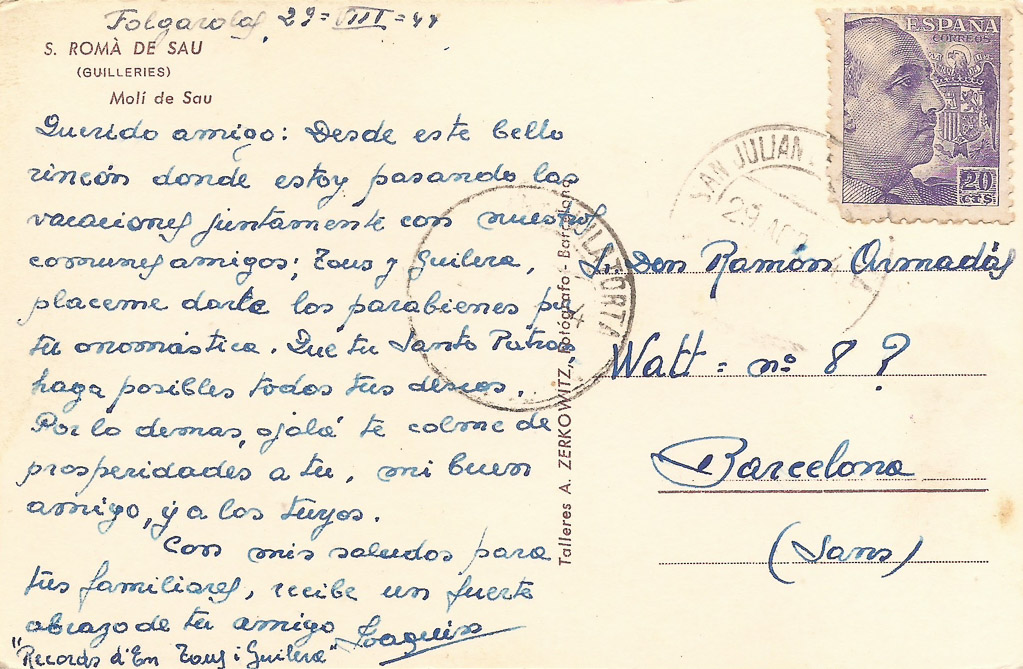 Folgarolas, 29=VIII=44
S. ROMÀ DE SAU
(GUILLERIES)
Molí de Sau
Querido amigo: Desde este bello
rincón donde estoy pasando las
vacaciones juntamente con nuestros
comunes amigos; Tous y Guilera,
placeme darte los parabienes por
tu onomástica. Que tu Santo Patrón
haga posibles todos tus deseos.
Por lo demas, ojalá te colme de
prosperidades a tu, mi buen
amigo, y a los tuyos.
Con mis saludos para
tus familiares, recibe un fuerte
abrazo de tu amigo Joaquin
"Records d'En Tous i Guilera"
Talleres A. ZERKOWITZ, Fotógrafo - Barcelona
ESPAÑA
CORREOS
20
CTS.
SAN JULIAN
29 AGO
VILATORTA
Don Ramón Armadás
Watt = nº 8 ?
Barcelona
(Sans)